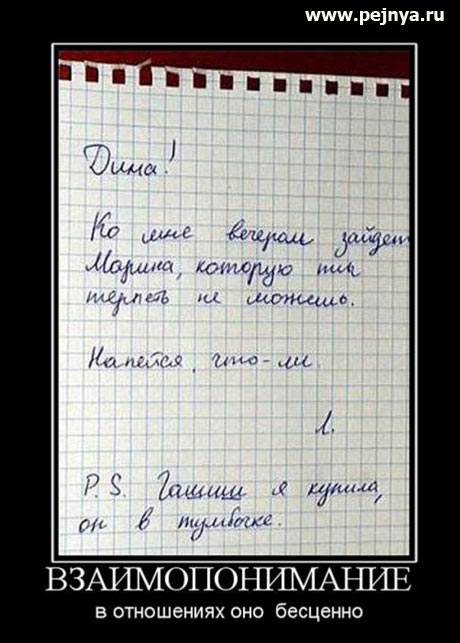 www.pejnya.ru
Дима!
Ко мне вечером зайдет
Марина, которую ты
терпеть не можешь.
Напейся, что-ли.
Л.
P.S. Гашиш я купила,
он в тумбочке.
ВЗАИМОПОНИМАНИЕ
в отношениях оно бесценно